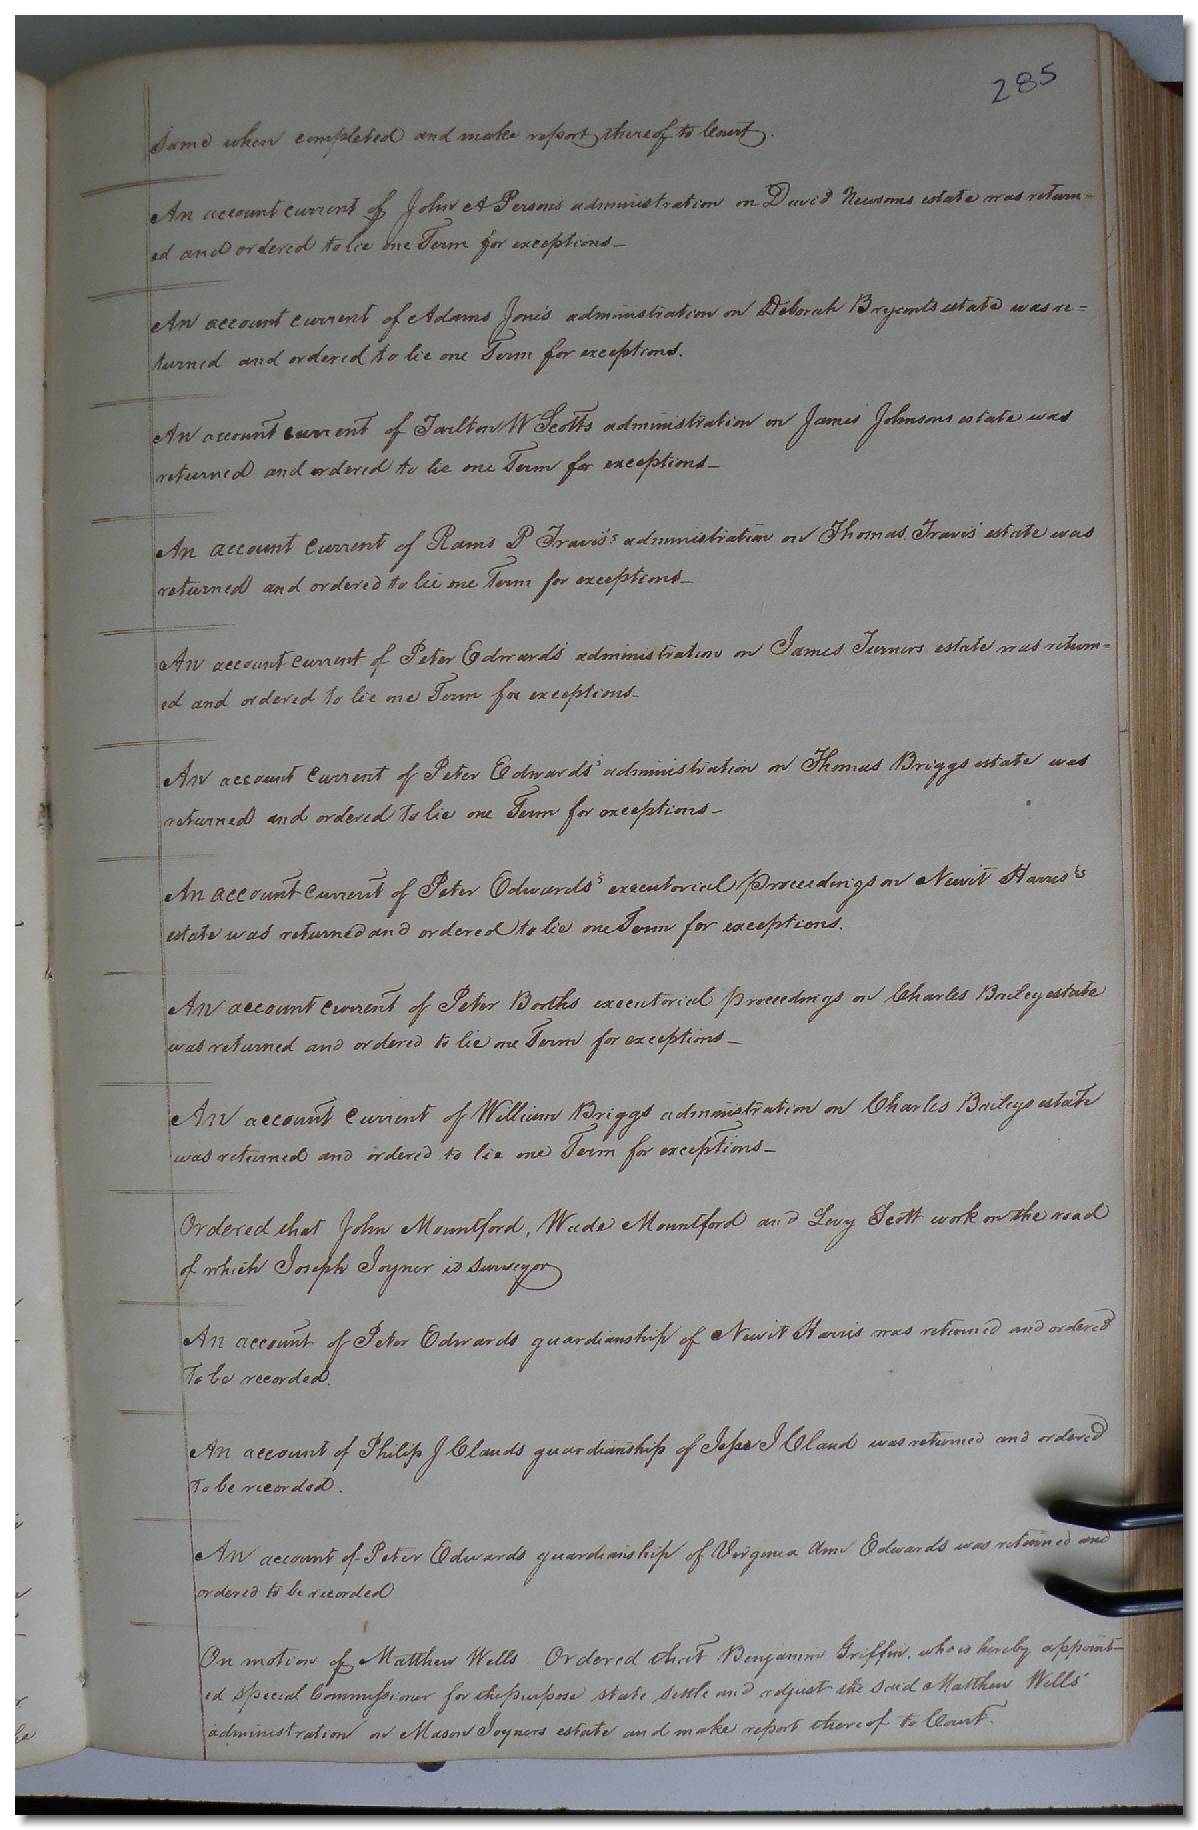 285
same when completed and make report thereof to Court.
An account current of John A Persons administration on David Newsoms estate was return=
ed and ordered to lie one Term for exceptions_
An account current of Adams Jones administration on Deborah Bryants estate was re=
turned and ordered to lie one Term for exceptions.
An account current of Tarlton W Scotts administration on James Johnsons estate was
returned and ordered to lie one Term for exceptions_
An account current of Rams P Travis's administration on Thomas Travis estate was
returned and ordered to lie one Term for exceptions_
An account current of Peter Edwards' administration on James Turners estate was return=
ed and ordered to lie one Term for exceptions_
An account current of Peter Edwards' administration on Thomas Briggs estate was
returned and ordered to lie one Term for exceptions_
An account current of Peter Edwards's executorial proceedings on Newit Harris's
estate was returned and ordered to lie one Term for exceptions.
An account current of Peter Booths executorial proceedings on Charles Briley estate
was returned and ordered to lie one Term for exceptions_
An account current of William Briggs administration on Charles Brileys estate
was returned and ordered to lie one Term for exceptions_
Ordered that John Mountford, Wade Mountford and Levy Scott work on the road
of which Joseph Joyner is surveyor
An account of Peter Edwards guardianship of Newit Harris was returned and ordered
to be recorded.
An account of Philip J Clauds guardianship of Jesse J Claud was returned and ordered
to be recorded.
An account of Peter Edwards guardianship of Virginia Ann Edwards was returned and
ordered to be recorded
On motion of Matthew Wells Ordered that Benjamin Griffin, who is hereby appoint-
ed special Commissioner for the purpose state settle and adjust the said Matthew Wells'
administration on Mason Joyners estate and make report thereof to Court.